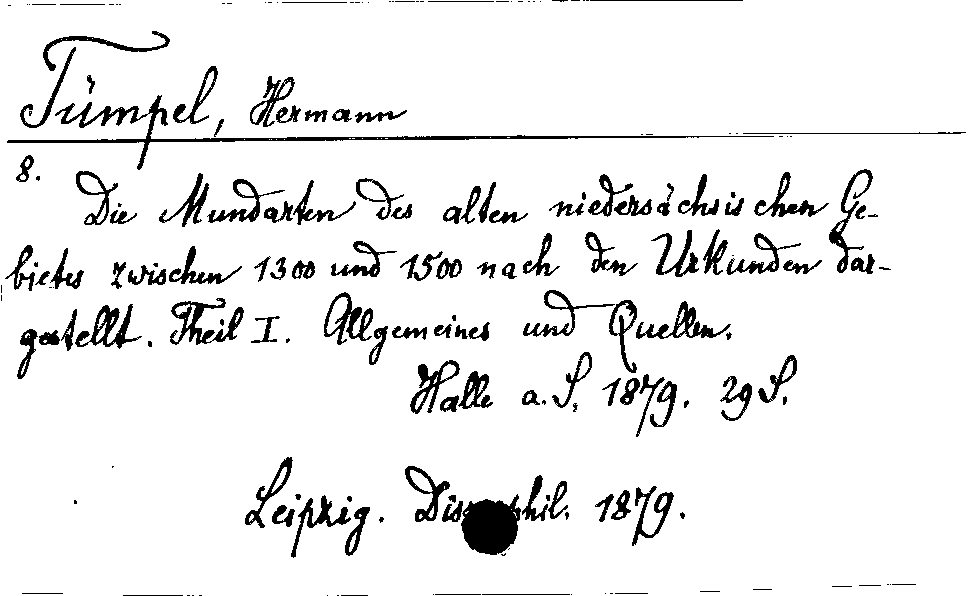 Tümpel, Hermann
8.
Die Mundarten des alten niedersächsischen Ge-
bietes zwischen 1300 und 1500 nach den Urkunden dar-
gestellt. Theil I. Allgemeines und Quellen.
Halle a. S. 1879. 29 S.
Leipzig. Diss. phil. 1879.